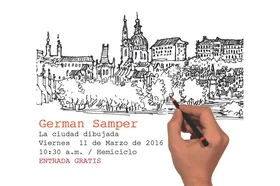 German Samper
La ciudad dibujada
Viernes 11 de Marzo de 2016
10:30 a.m. / Hemiciclo
ENTRADA GRATIS